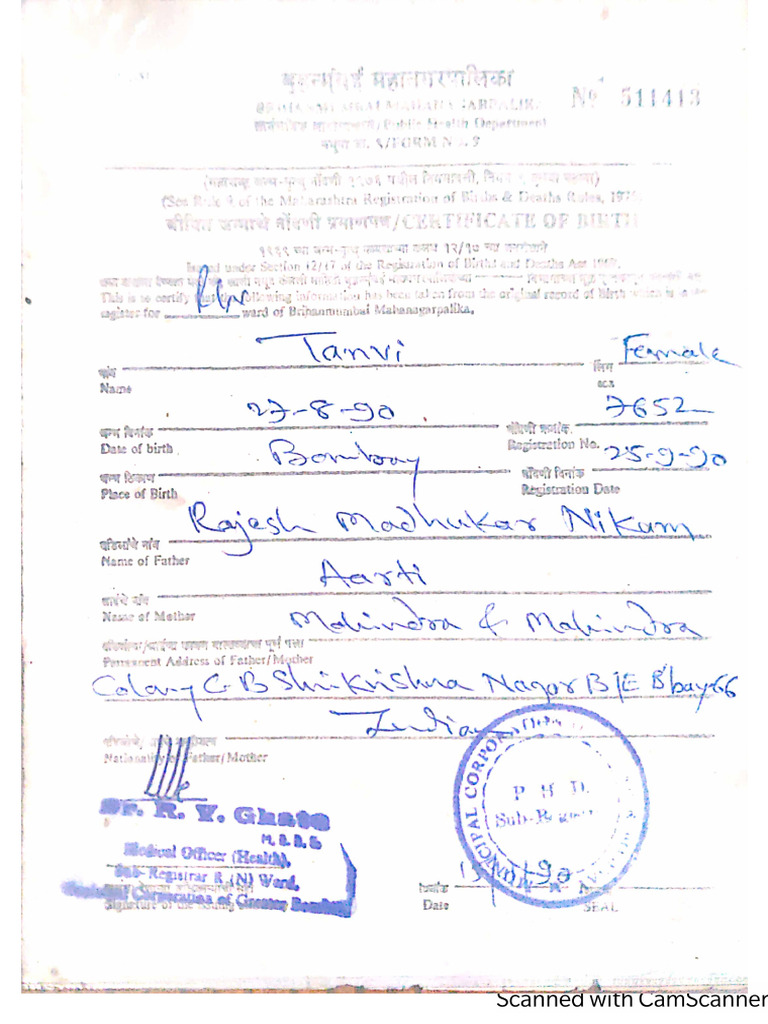 बृहन्मुंबई महानगरपालिका
BRIHANMUMBAI MAHANAGARPALIKA
No 511413
सार्वजनिक आरोग्य खाते/Public Health Department
नमुना क्र. ९/FORM No. 9
(See Rule 9 of the Maharashtra Registration of Births & Deaths Rules, 1976)
जीवित जन्माचे नोंदणी प्रमाणपत्र/CERTIFICATE OF BIRTH
Issued under Section 12/17 of the Registration of Births and Deaths Act 1969.
This is to certify that the following information has been taken from the original record of birth which is in the
register for R/N ward of Brihanmumbai Mahanagarpalika.
Tanvi Female
नांव लिंग
Name sex
27-8-90 7652
जन्म दिनांक नोंदणी क्रमांक
Date of birth Registration No. 25-9-90
Bombay
जन्म ठिकाण नोंदणी दिनांक
Place of Birth Registration Date
Rajesh Madhukar Nikum
वडिलांचे नांव
Name of Father
Aarti
आईचे नांव
Name of Mother
Mahindra & Mahindra
Permanent Address of Father/Mother
Colany C B Shrikrishna Nagar B/E B'bay-66
Indian
Nationality of Father/Mother
Dr. R. V. Ghate
M. B. B. S.
Medical Officer (Health),
Sub-Registrar R (N) Ward,
Municipal Corporation of Greater Bombay
Signature of the Issuing
MUNICIPAL CORPORATION
P H D.
Sub-
दिनांक
Date
SEAL
Scanned with CamScanner